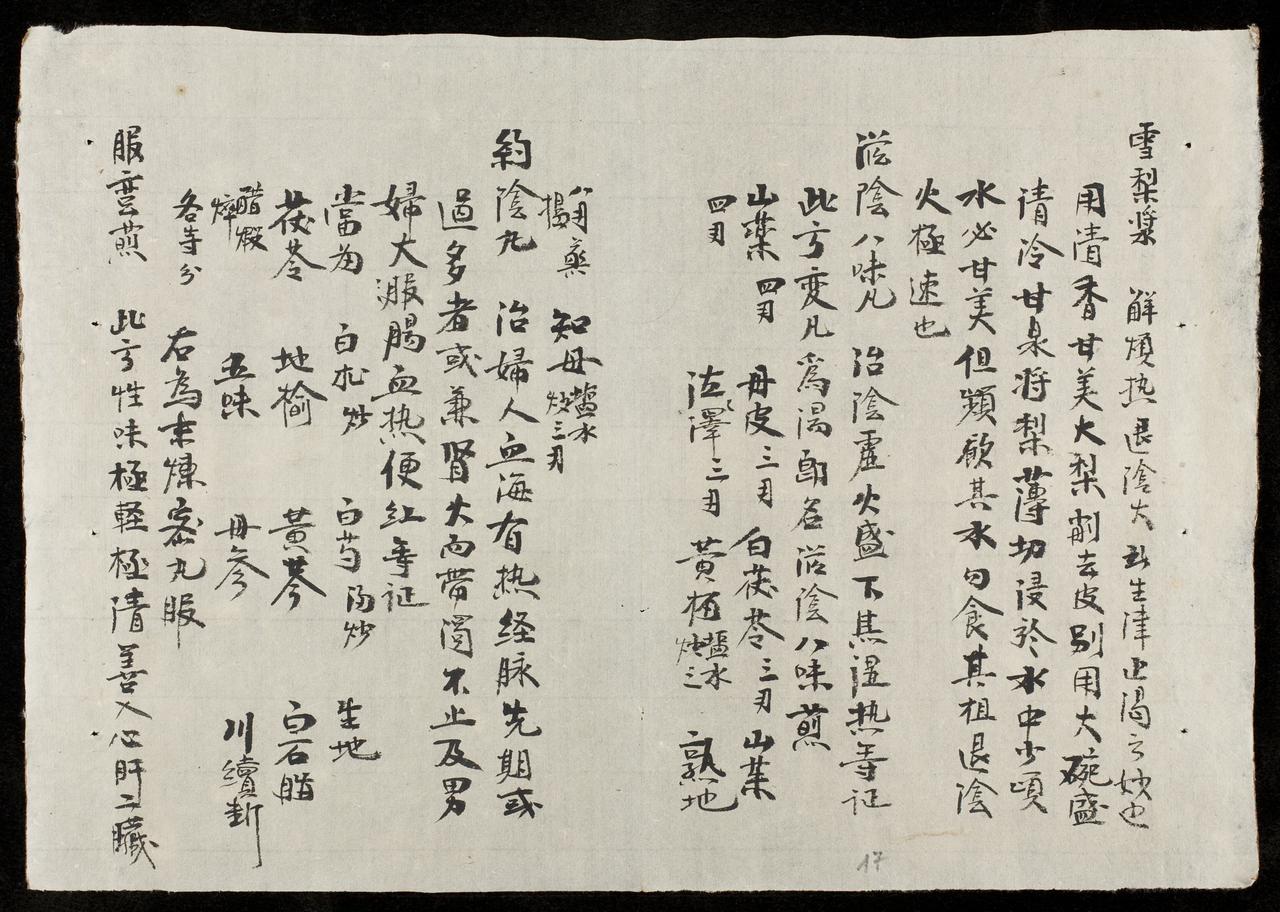 雪梨漿 解煩热退陰火 生津止渴之妙也
用清香甘美大梨削去皮别用大碗盛
清冷甘泉将梨薄切浸於水中少頃
水必甘美但頻飲其水勿食其柤退陰
火極速也
滋陰八味凡 治陰虚火盛下焦湿热等证
此方变凡爲湯即名滋陰八味煎
山藥四刃 丹皮三刃 白茯苓三刃 山茱
四刃 泽澤三刃 黄栢塩水炒三 熟地
八刃 藥 知母塩水炒三刃
約陰丸 治婦人血海有热経脉先期或
過多者或兼肾火而带濁不止及男
婦大服腸血热便红等证
當为 白朮炒 白芍汤炒 生地
茯苓 地榆 黄芩 白石脂
醋煆焠 五味 丹参 川續断
各等分 右為末煉宻丸服
服蛮煎 此方性味極軽極清善入心肝二臟
17